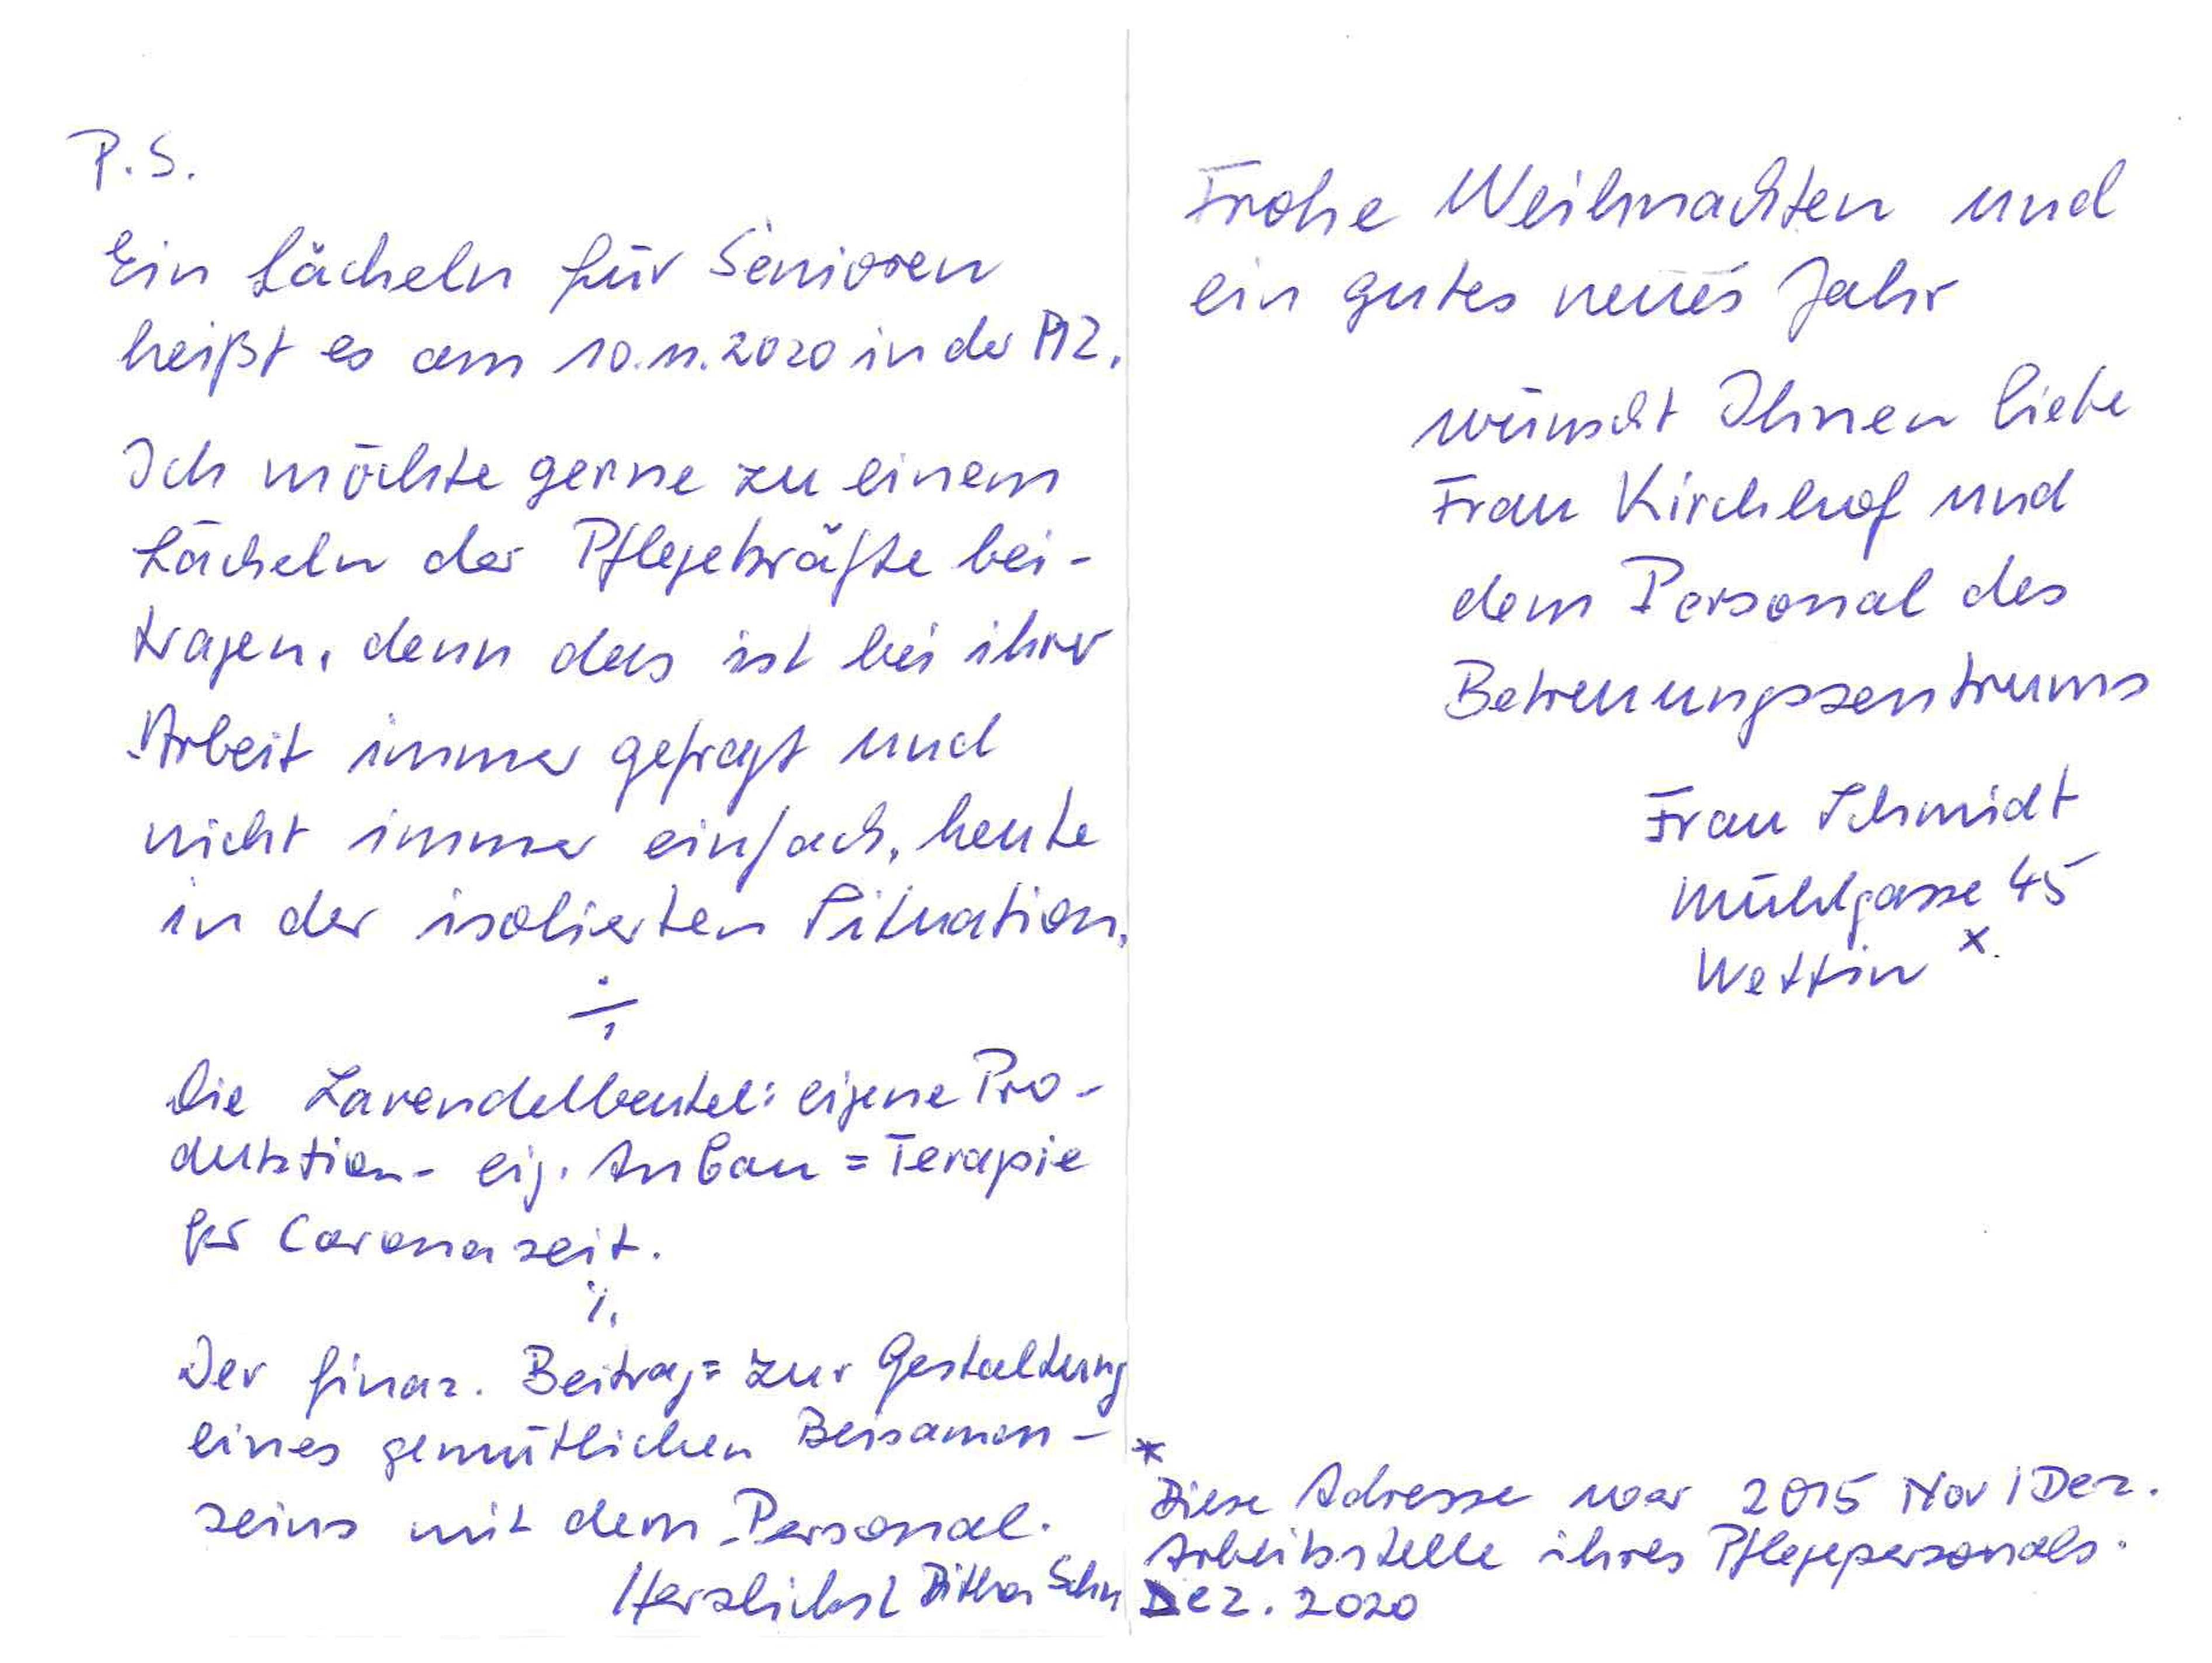 P.S.
Ein Lächeln für Senioren
heißt es am 10.11.2020 in der MZ.
Ich möchte gerne zu einem
Lächeln der Pflegekräfte bei-
tragen, denn das ist bei ihrer
Arbeit immer gefragt und
nicht immer einfach, heute
in der isolierten Situation.
Die Lavendelbeutel: eigene Pro-
duktion - eig. Anbau = Terapie
der Coronazeit.
Der finaz. Beitrag = zur Gestaltung
eines gemütlichen Beisamen-
seins mit dem Personal.
Herzlichst Schm
Frohe Weihnachten und
ein gutes neues Jahr
wünscht Ihnen liebe
Frau Kirchhof und
dem Personal des
Betreuungszentrums
Frau Schmidt
Mühlgasse 45
Wettin *
*
Diese Adresse war 2015 Nov/Dez.
Arbeitsstelle ihres Pflegepersonals.
Dez. 2020